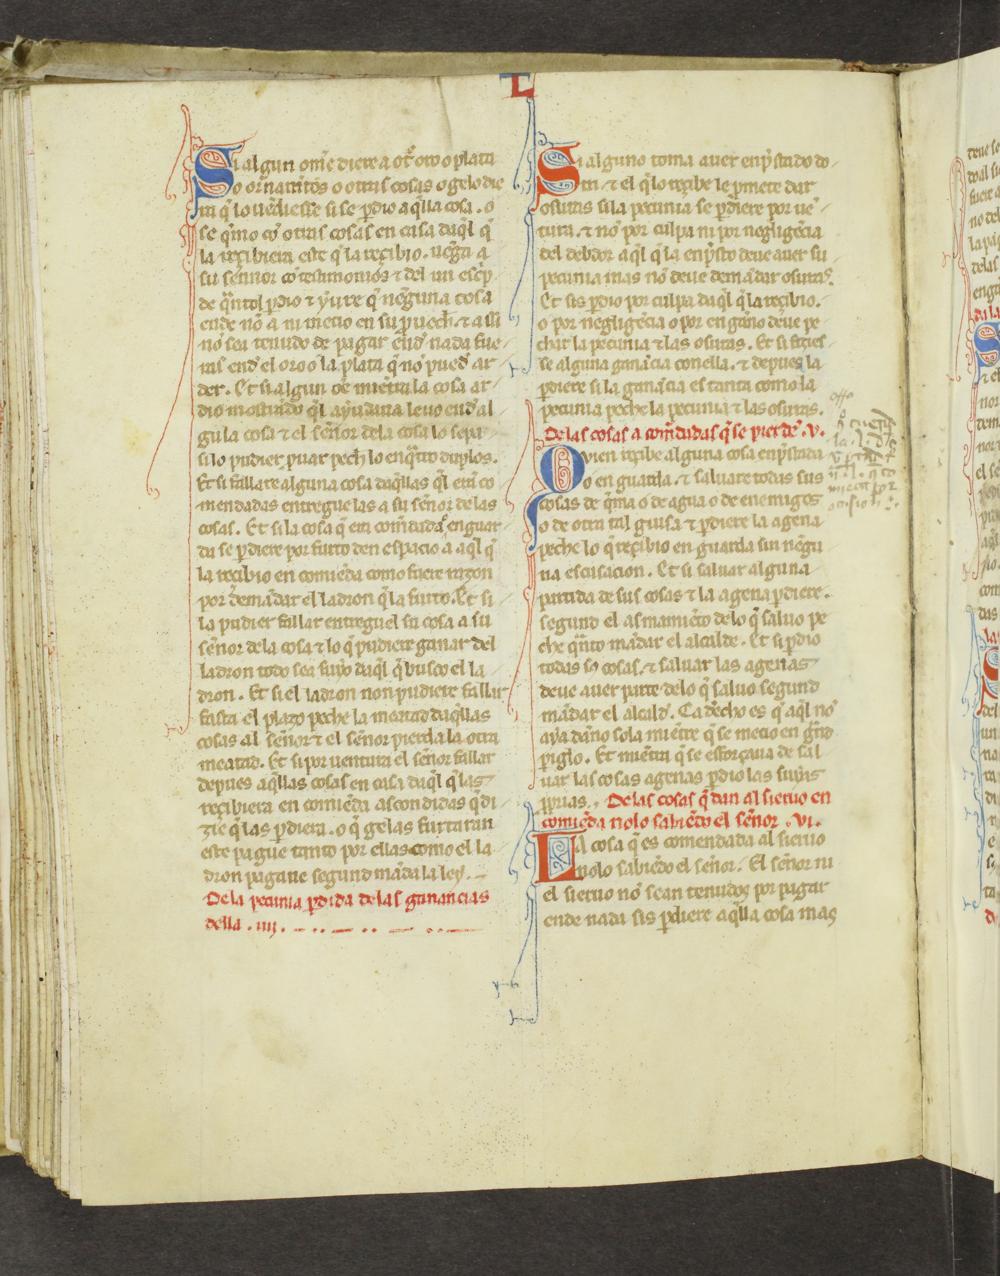 L
Si algun ome diere a otro oro o plata
o ornamẽtos o otras cosas o gelo die
ra q̃ lo uẽdiesse si se ꝑdio aq̃lla cosa . o
se q̃mo cõ otras cosas en casa daq̃l q̃
la reçibiera este q̃ la reçibio . uẽga a
su sennor cõ testimonios ⁊ del un escp̃
de q̃ntol ꝑdio ⁊ yure q̃ nẽguna cosa
ende nõ a ni metio en su ꝓuech̃ . ⁊ assi
nõ sea tenudo de pagar end̃ nada fue
ras end̃ el oro o la plata q̃ nõ pued̃ ar
der . Et si algun oẽ miẽtra la cosa ar
dio mostrãdo q̃l ayudaua leuo end̃ al
guna cosa ⁊ el señor dela cosa lo sepa
si lo pudier ꝓuar pech lo en q̃tro duplos .
Et si fallare alguna cosa daq̃llas q̃l erã co
mendadas entregue las a su señor de las
cosas . Et si la cosa q̃ era comẽdada en guar
da se ꝑdiere por furto den espacio a aq̃l q̃
la reçibio en comiẽda como fuere razon
por demãdar el ladron q̃ la furto . Et si
lo pudier fallar entreguel su cosa a su
señor de la cosa ⁊ lo q̃ pudiere ganar del
ladron todo sea suyo daq̃l q̃ busco el la
dron . Et si el ladron non pudiere fallar
fasta el plazo peche la meatad daq̃llas
cosas al señor ⁊ el señor pierda la otra
meatad . Et si por uentura el señor fallar
depues aq̃llas cosas en casa daq̃l q̃ las
reçibiera en comiẽda ascondidas q̃ di
zie q̃ las ꝑdiera . o q̃ gelas furtaran
este pague tanto por ellas como el la
dron pagarie segund mãda la ley .
De la pecunia ꝑdida de las ganancias
della . iiij .
Si alguno toma auer enp̃stado do
tri ⁊ el q̃ lo reçibe le ꝓmete dar
osuras si la pecunia se ꝑdiere por uẽ
tura . ⁊ nõ por culpa ni por negligẽcia
del debdor aq̃l q̃ la enp̃sto deue auer su
pecunia mas nõ deue demãdar osuras .
Et sis ꝑdio por culpa daq̃l q̃ la reçibio .
o por negligẽcia o por engano deue pe
char la pecunia ⁊ las osuras . Et si fizies
se alguna ganãcia con ella . ⁊ depues la
ꝑdiere si la ganãcia es tanta como la
pecunia peche la pecunia ⁊ las osuras .
De las cosas acomẽdadas q̃ se pierdẽ . v .
Qvien reçibe alguna cosa enp̃stada
o en guarda . ⁊ saluare todas sus
cosas de q̃ma o de agua o de enemigos
o de otra tal guisa ⁊ ꝑdiere la agena
peche lo q̃ reçibio en guarda sin nẽgu
na escusacion . Et si saluar alguna
partida de sus cosas ⁊ la agena ꝑdiere .
segund el asmamiẽto de lo q̃ saluo pe
che q̃nto mãdar el alcalde . Et si ꝑdio
todas so cosas . ⁊ saluar las agenas
deue auer parte de lo q̃ saluo segund
mãdar el alcald . Ca drecho es q̃ aq̃l nõ
aya daño sola miẽtre q̃ se metio en grãd
ꝑiglo . Et miẽtra q̃ se esforçaua de sal
uar las cosas agenas ꝑdio las suyas
ꝓprias . De las cosas q̃ dan al sieruo en
comiẽda nolo sabiẽdo el señor . vi .
La cosa q̃ es comendada al sieruo
nolo sabiẽdo el señor . El señor ni
el sieruo nõ sean tenudos por pagar
ende nada sis ꝑdiere aq̃lla cosa mas